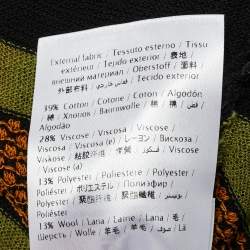 External fabric / Tessuto esterno / Tissu
extérieur / Tejido exterior / 表地 /
внешний материал / Oberstoff / 面料 /
外部布料 / Tecido exterior
39% Cotton / Cotone / Coton / Algodón
綿 / Хлопок / Baumwolle / 棉 / 棉 /
Algodão
28% Viscose / Viscosa / Viscose /
Viscosa / Viscosa (e) / レーヨン / Вискоза /
Viskose / 粘胶纤维 / 嫘縈 /
Viscose (a)
13% Polyester / Poliestere / Polyester /
Poliéster / ポリエステル / Полиэфир /
Polyester / 聚酯纤维 / 聚酯纖維 /
Poliéster
13% Wool / Lana / Laine / Lana / 毛 /
Шерсть / Wolle / 羊毛 / 羊毛 / Lã